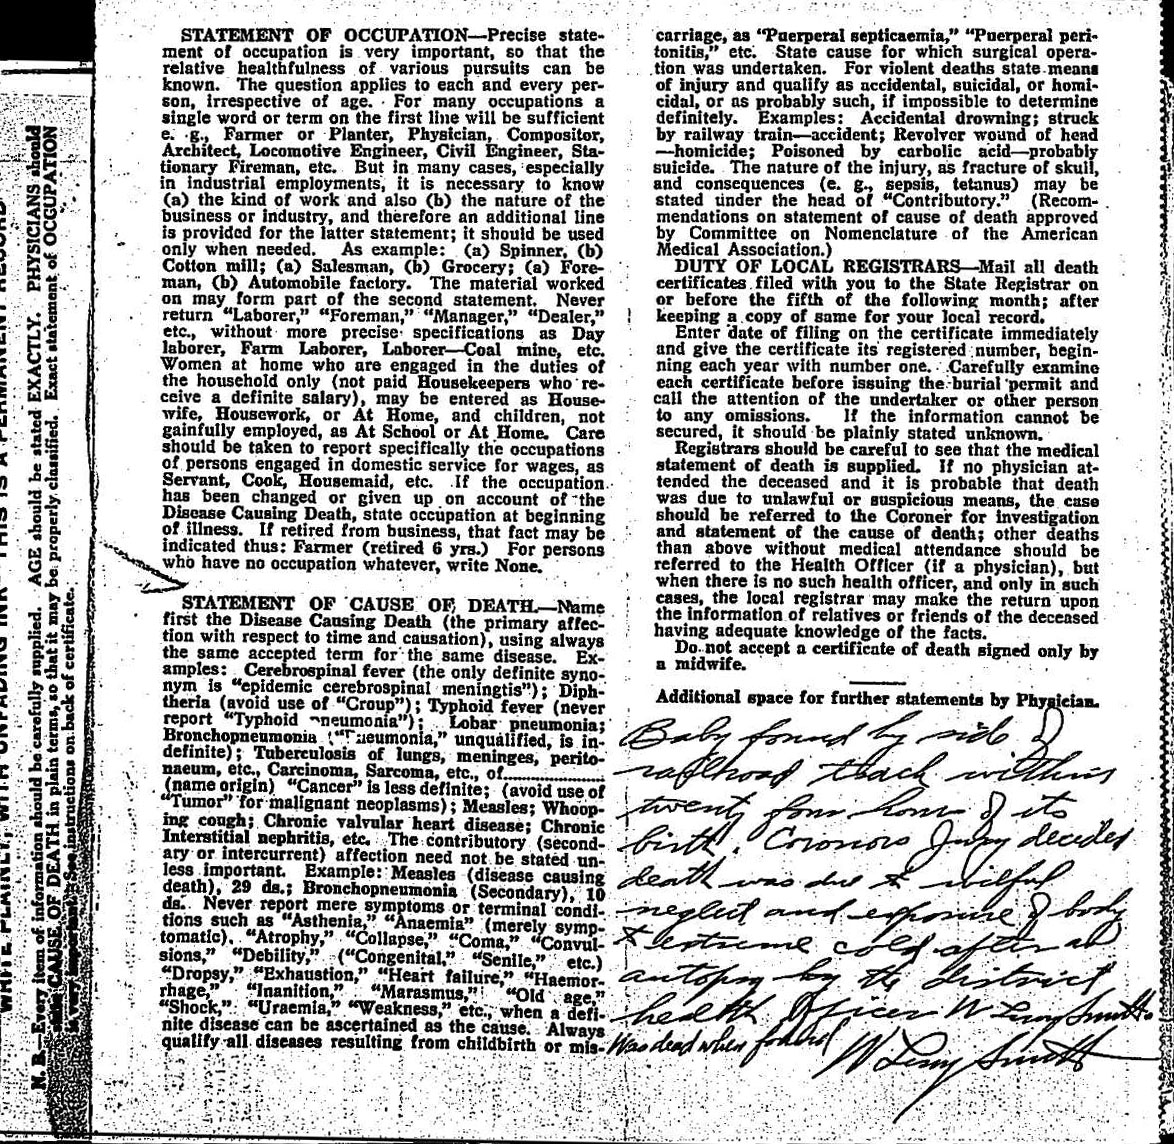 STATEMENT OF OCCUPATION—Precise state-
ment of occupation is very important, so that the
relative healthfulness of various pursuits can be
known. The question applies to each and every per-
son, irrespective of age. For many occupations a
single word or term on the first line will be sufficient
e. g., Farmer or Planter, Physician, Compositor,
Architect, Locomotive Engineer, Civil Engineer, Sta-
tionary Fireman, etc. But in many cases, especially
in industrial employments, it is necessary to know
(a) the kind of work and also (b) the nature of the
business or industry, and therefore an additional line
is provided for the latter statement; it should be used
only when needed. As example: (a) Spinner, (b)
Cotton mill; (a) Salesman, (b) Grocery; (a) Fore-
man, (b) Automobile factory. The material worked
on may form part of the second statement. Never
return "Laborer," "Foreman," "Manager," "Dealer,"
etc., without more precise specifications as Day
laborer, Farm Laborer, Laborer—Coal mine, etc.
Women at home who are engaged in the duties of
the household only (not paid Housekeepers who re-
ceive a definite salary), may be entered as House-
wife, Housework, or At Home, and children, not
gainfully employed, as At School or At Home. Care
should be taken to report specifically the occupations
of persons engaged in domestic service for wages, as
Servant, Cook, Housemaid, etc. If the occupation
has been changed or given up on account of the
Disease Causing Death, state occupation at beginning
of illness. If retired from business, that fact may be
indicated thus: Farmer (retired 6 yrs.) For persons
who have no occupation whatever, write None.
STATEMENT OF CAUSE OF DEATH.—Name
first the Disease Causing Death (the primary affec-
tion with respect to time and causation), using always
the same accepted term for the same disease. Ex-
amples: Cerebrospinal fever (the only definite syno-
nym is "epidemic cerebrospinal meningtis"); Diph-
theria (avoid use of "Croup"); Typhoid fever (never
report "Typhoid pneumonia"); Lobar pneumonia;
Bronchopneumonia ("Pneumonia," unqualified, is in-
definite); Tuberculosis of lungs, meninges, perito-
naeum, etc., Carcinoma, Sarcoma, etc., of............
(name origin) "Cancer" is less definite; (avoid use of
"Tumor" for malignant neoplasms); Measles; Whoop-
ing cough; Chronic valvular heart disease; Chronic
Interstitial nephritis, etc. The contributory (second-
ary or intercurrent) affection need not be stated un-
less important. Example: Measles (disease causing
death), 29 ds.; Bronchopneumonia (Secondary), 10
ds. Never report mere symptoms or terminal condi-
tions such as "Asthenia," "Anaemia" (merely symp-
tomatic), "Atrophy," "Collapse," "Coma," "Convul-
sions," "Debility," ("Congenital," "Senile," etc.)
"Dropsy," "Exhaustion," "Heart failure," "Haemor-
rhage," "Inanition," "Marasmus," "Old age,"
"Shock," "Uraemia," "Weakness," etc., when a defi-
nite disease can be ascertained as the cause. Always
qualify all diseases resulting from childbirth or mis-
carriage, as "Puerperal septicaemia," "Puerperal peri-
tonitis," etc. State cause for which surgical opera-
tion was undertaken. For violent deaths state means
of injury and qualify as accidental, suicidal, or homi-
cidal, or as probably such, if impossible to determine
definitely. Examples: Accidental drowning; struck
by railway train—accident; Revolver wound of head
—homicide; Poisoned by carbolic acid—probably
suicide. The nature of the injury, as fracture of skull,
and consequences (e. g., sepsis, tetanus) may be
stated under the head of "Contributory." (Recom-
mendations on statement of cause of death approved
by Committee on Nomenclature of the American
Medical Association.)
DUTY OF LOCAL REGISTRARS—Mail all death
certificates filed with you to the State Registrar on
or before the fifth of the following month; after
keeping a copy of same for your local record.
Enter date of filing on the certificate immediately
and give the certificate its registered number, begin-
ning each year with number one. Carefully examine
each certificate before issuing the burial permit and
call the attention of the undertaker or other person
to any omissions. If the information cannot be
secured, it should be plainly stated unknown.
Registrars should be careful to see that the medical
statement of death is supplied. If no physician at-
tended the deceased and it is probable that death
was due to unlawful or suspicious means, the case
should be referred to the Coroner for investigation
and statement of the cause of death; other deaths
than above without medical attendance should be
referred to the Health Officer (if a physician), but
when there is no such health officer, and only in such
cases, the local registrar may make the return upon
the information of relatives or friends of the deceased
having adequate knowledge of the facts.
Do not accept a certificate of death signed only by
a midwife.
Additional space for further statements by Physician.
Baby found by side of
railroad track within
twenty four hours of its
birth. Coronors Jury decided
death was due to wilful
neglect and exposure of body
to extreme cold after an
autopsy by the district
health Officer W Leroy Smith
Was dead when found
W Leroy Smith
N. B.—Every item of information should be carefully supplied. AGE should be stated EXACTLY. PHYSICIANS should
state CAUSE OF DEATH in plain terms, so that it may be properly classified. Exact statement of OCCUPATION
is very important. See instructions on back of certificate.